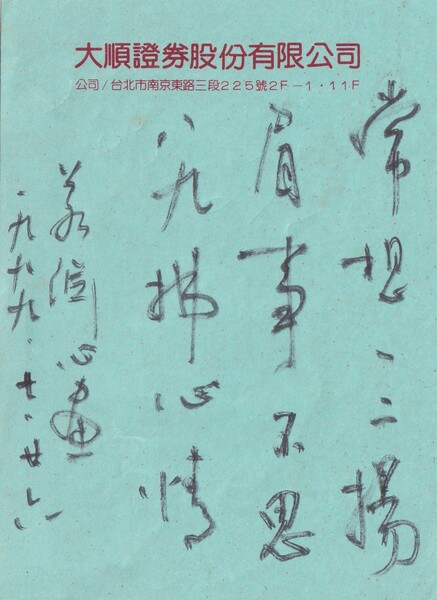 大順證券股份有限公司
公司/台北市南京東路三段225號2F-1·11F
常想一二揚
眉事不思
八九拂心情
若心畫
一九九九.七.廿六